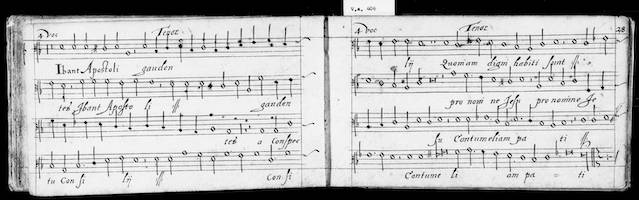 V.a. 406
4 voc Tenor
Ibant Apostoli gauden
tes Ibant Aposto li ij gauden
tes a conspec
tu Con si lij ij Con si
4 voc Tenor 28
lij Quoniam digni habiti sunt ij
pro nomi ne Jesu pro nomine Je
su Contumeliam pa ti ij
Contume li am pa - ti